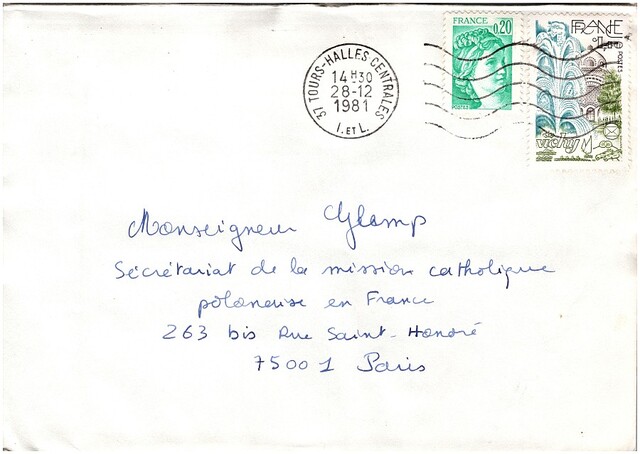 FRANCE
0,20
POSTES
FRANCE
1,40
POSTES
vichy
37 TOURS-HALLES CENTRALES
14H30
28-12
1981
I. ET L.
Monseigneur Glamp
Sécrétariat de la mission catholique
polonaise en France
263 bis Rue Saint-Honoré
75001 Paris